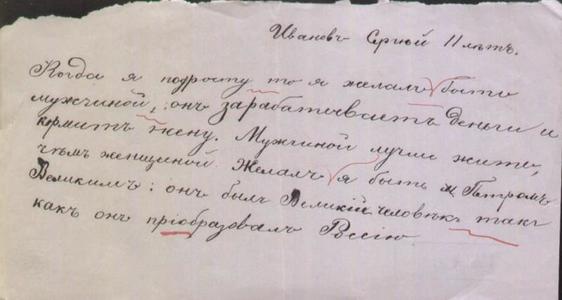 Ивановъ Сергѣй 11 лѣтъ.
Когда я подросту то я желалъ быть
мужчиной, онъ зарабатоваетъ деньги и
кормитъ жену. Мужчиной лучше жить,
чѣмъ женщиной. Желалъ я быть и Петромъ
Великимъ: онъ былъ Великій человѣкъ такъ
какъ онъ пріобразовалъ Россію.